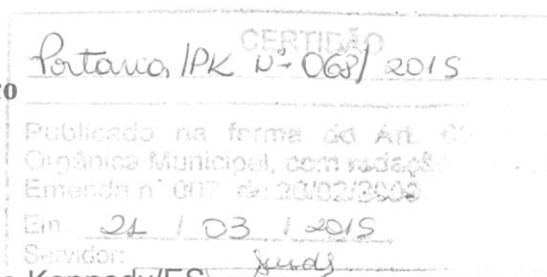 CERTIDÃO
Portaria/PK Nº 068/2015
Publicado na forma do Art.
Orgânica Municipal, com redação
Emenda nº 007 de 20/02/2009
Em 21 / 03 / 2015
Servidor:
Kennedy/ES